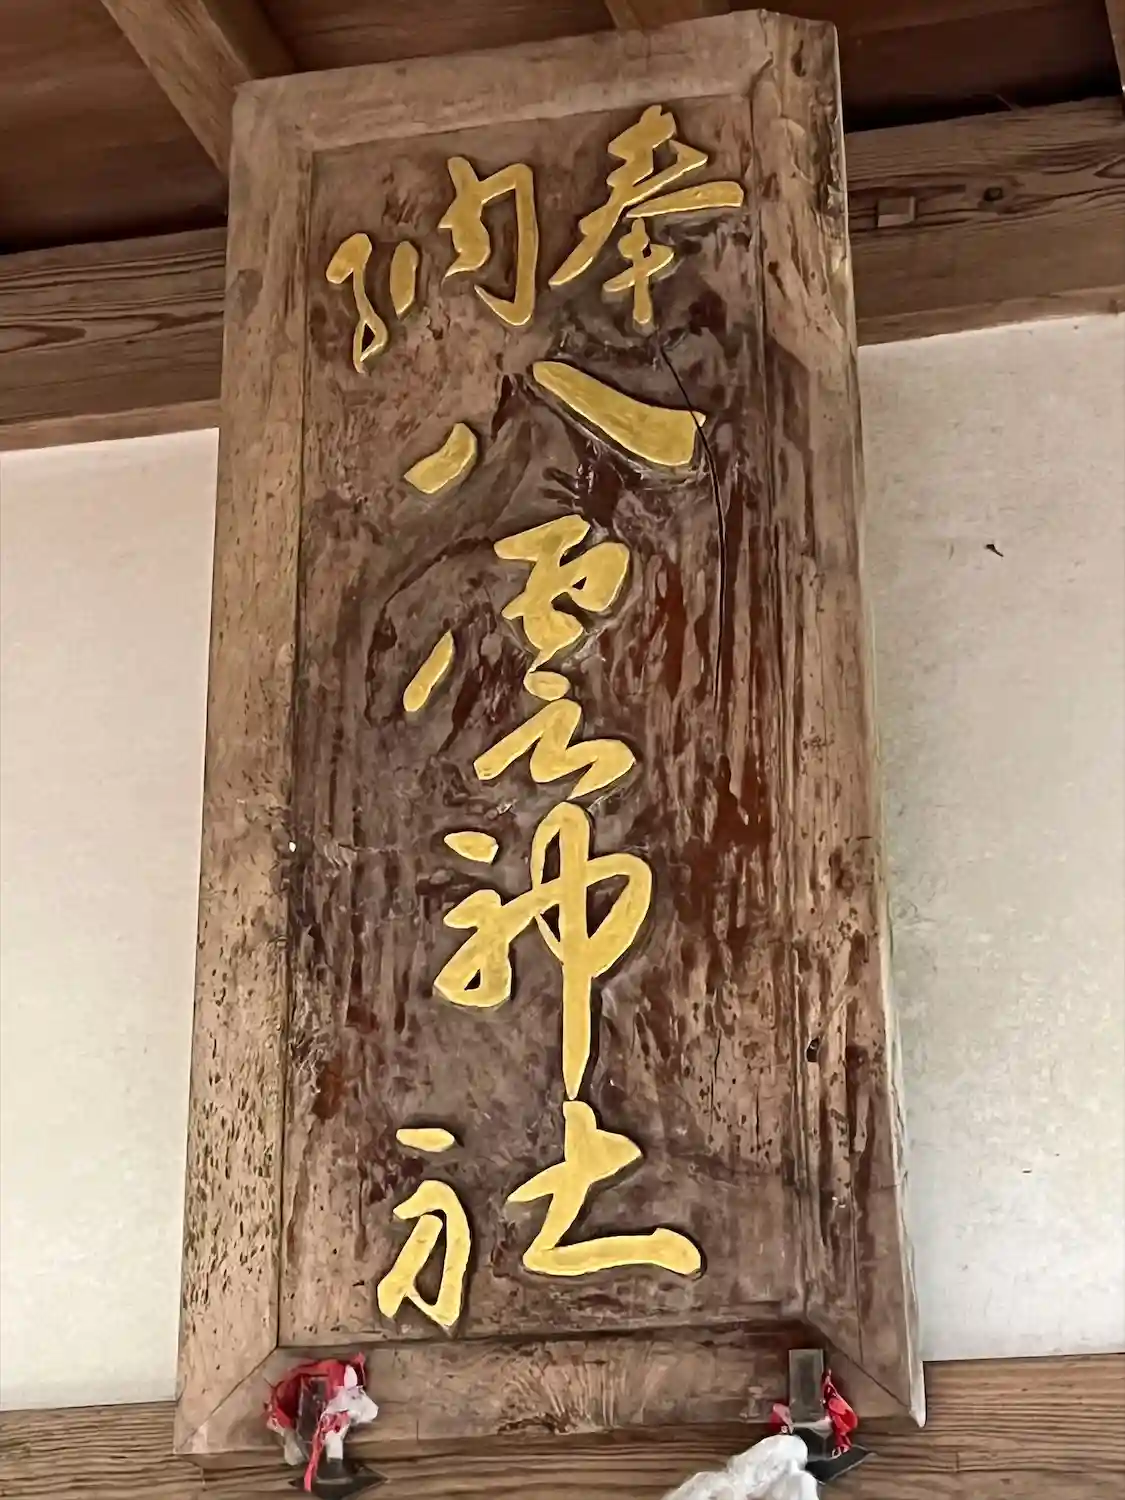 奉納
八雲神社